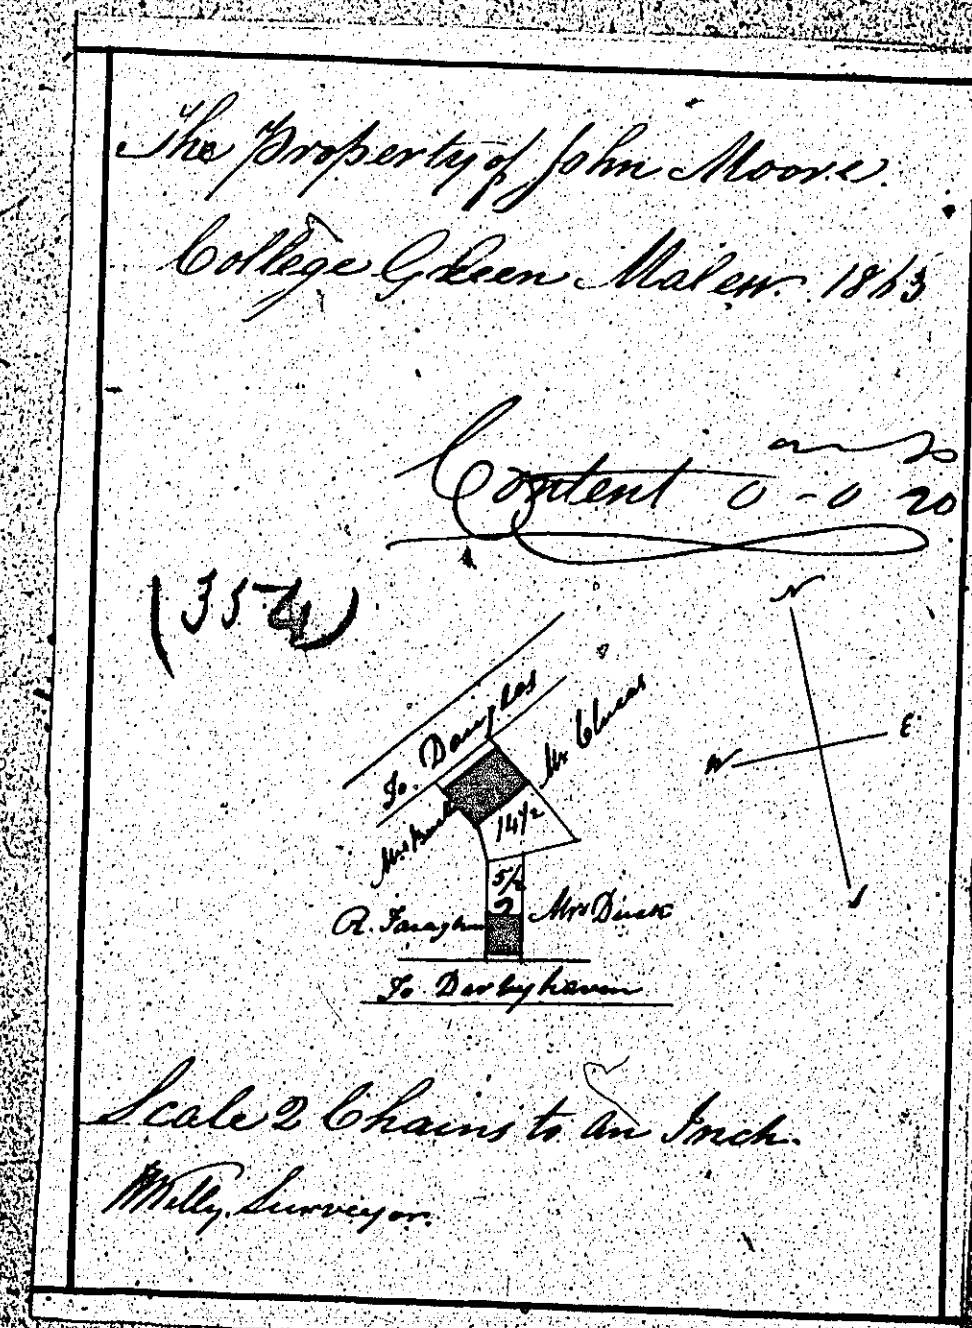 The Property of John Moore.
College Green Malew. 1863
Content 0 - 0 20
(354)
N
To. Douglas
Mr Clucas
E
W
14 1/2
5 1/2
R.
Mrs
S
To Darbyhaven
Scale 2 Chains to an Inch.
Kelly. Surveyor.